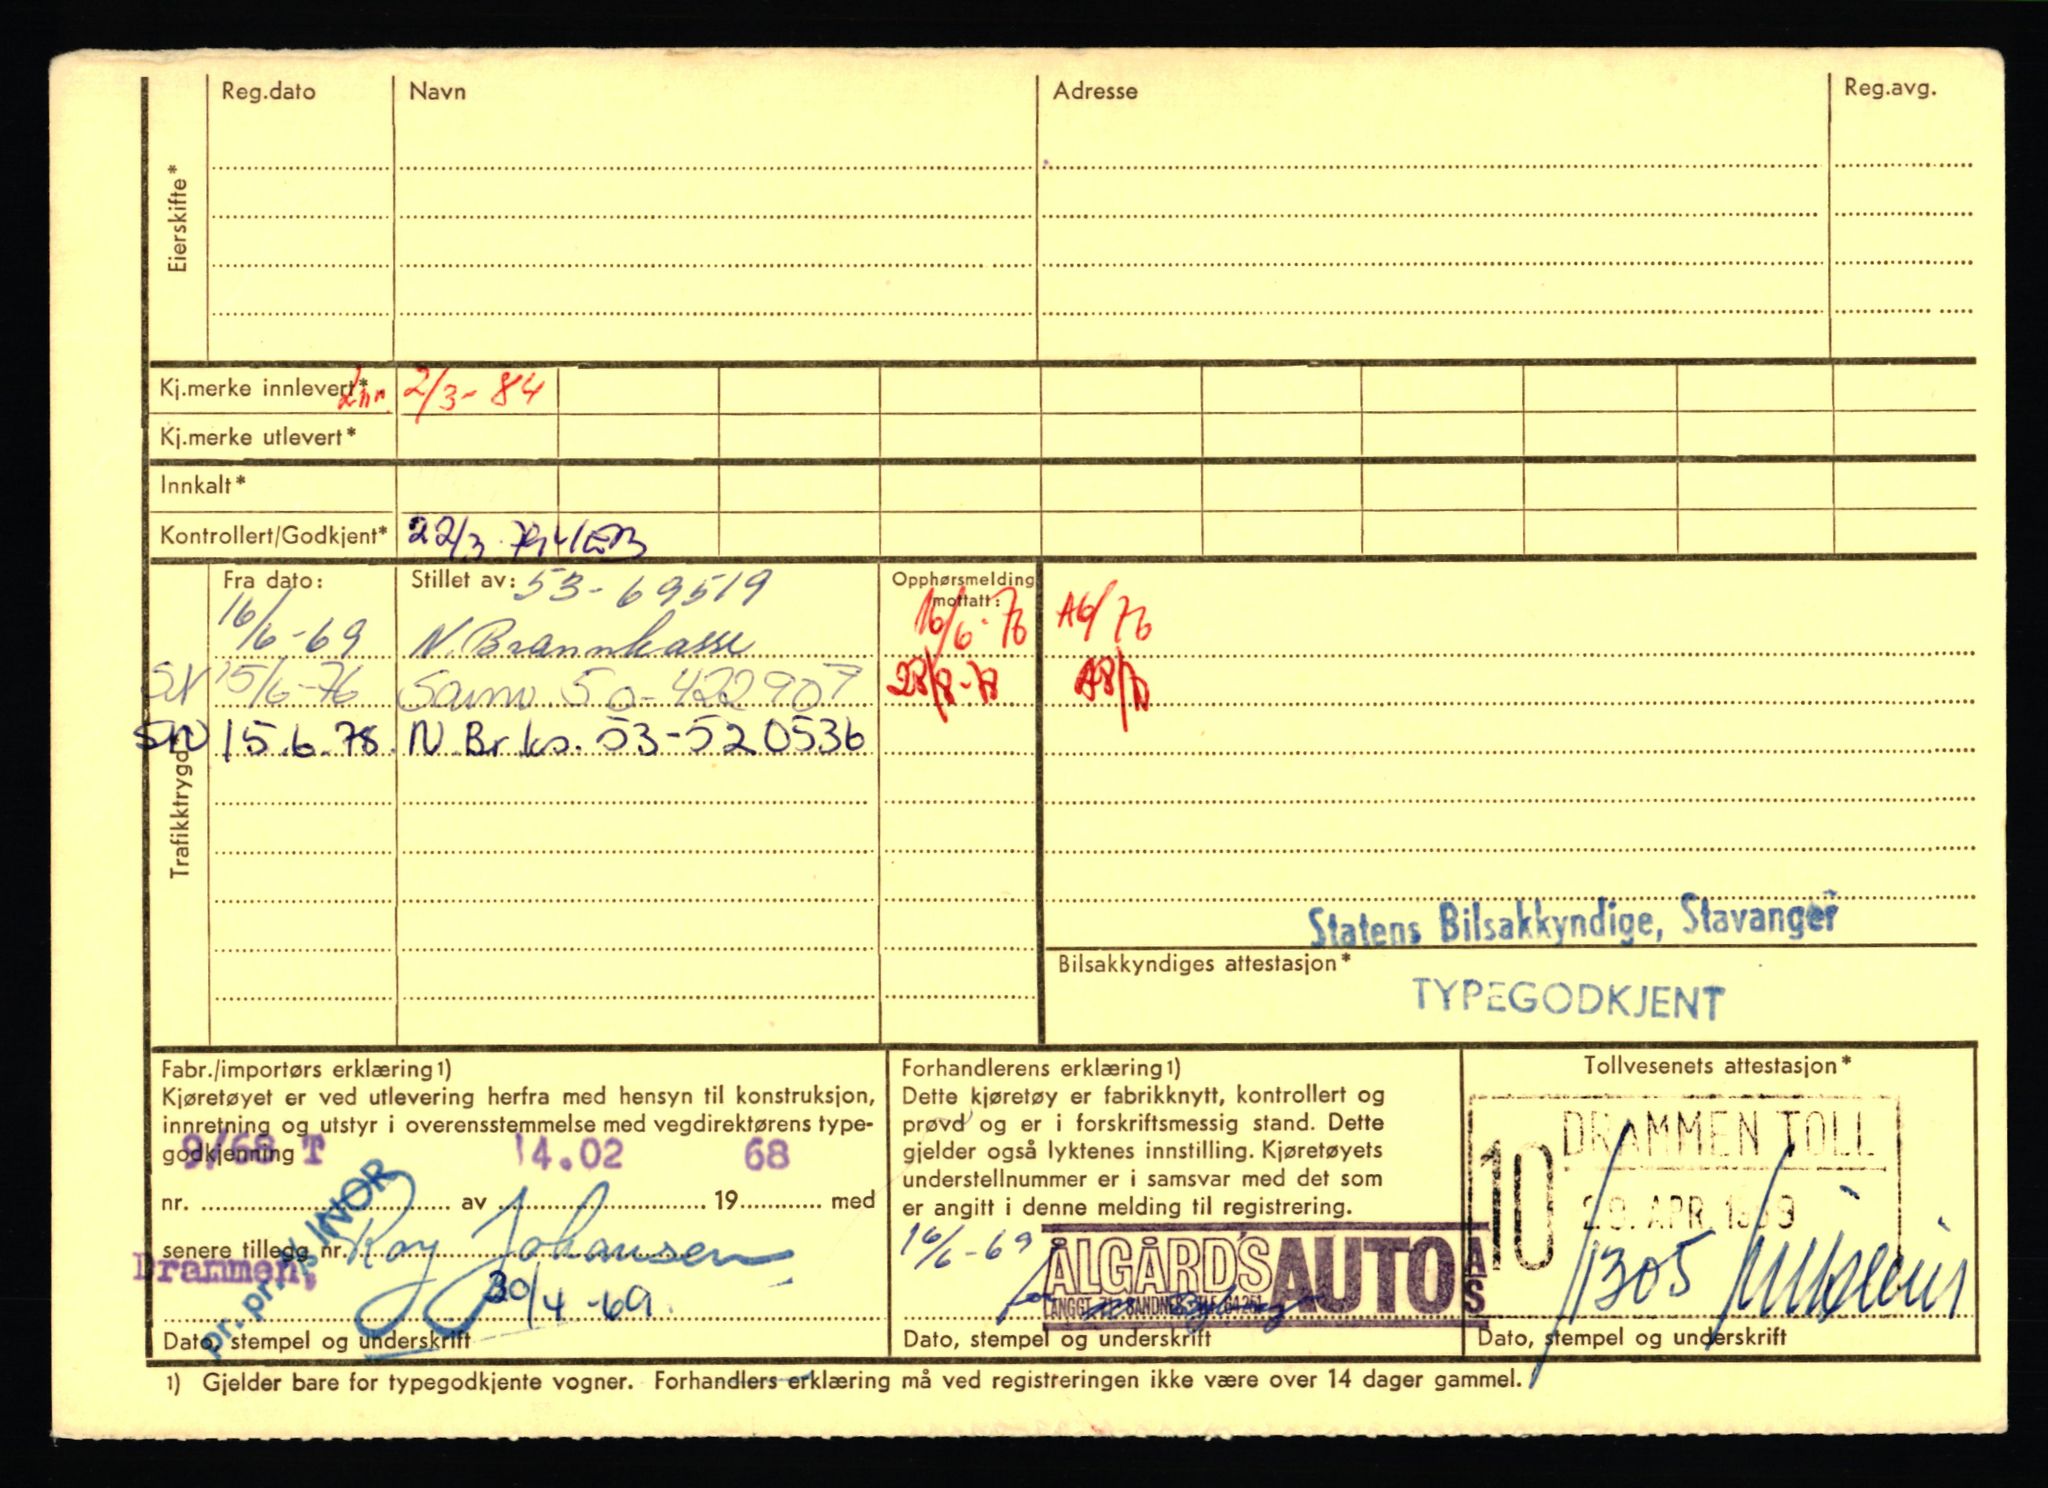 Reg.dato Navn Adresse Reg.avg.
Eierskifte*
Kj.merke innlevert* 2/3-84
Kj.merke utlevert*
Innkalt*
Kontrollert/Godkjent* 22/3
Trafikktrygd
Fra dato: Stillet av: 53-69519 Opphørsmelding mottatt:
16/6-69 N. Brannkasse 16/6-76 A6/76
SN 15/6-76 Samv. 50-422907 28/8-78 A8/78
SN 15.6.78 N Br.ks. 53-520536
Statens Bilsakkyndige, Stavanger
Bilsakkyndiges attestasjon*
TYPEGODKJENT
Fabr./importørs erklæring1)
Kjøretøyet er ved utlevering herfra med hensyn til konstruksjon,
innretning og utstyr i overensstemmelse med vegdirektørens type-
godkjenning
9/68 T 14.02 68
nr. av 19 med
senere tillegg nr. Roy Johansen
Drammen,
pr. pr. A/S INOR
30/4-69.
Dato, stempel og underskrift
Forhandlerens erklæring1)
Dette kjøretøy er fabrikknytt, kontrollert og
prøvd og er i forskriftsmessig stand. Dette
gjelder også lyktenes innstilling. Kjøretøyets
understellnummer er i samsvar med det som
er angitt i denne melding til registrering.
16/6-69
ÅLGÅRD'S AUTO A/S
Dato, stempel og underskrift
Tollvesenets attestasjon*
DRAMMEN TOLL
10
29. APR. 1969
1305
Dato, stempel og underskrift
1) Gjelder bare for typegodkjente vogner. Forhandlers erklæring må ved registreringen ikke være over 14 dager gammel.